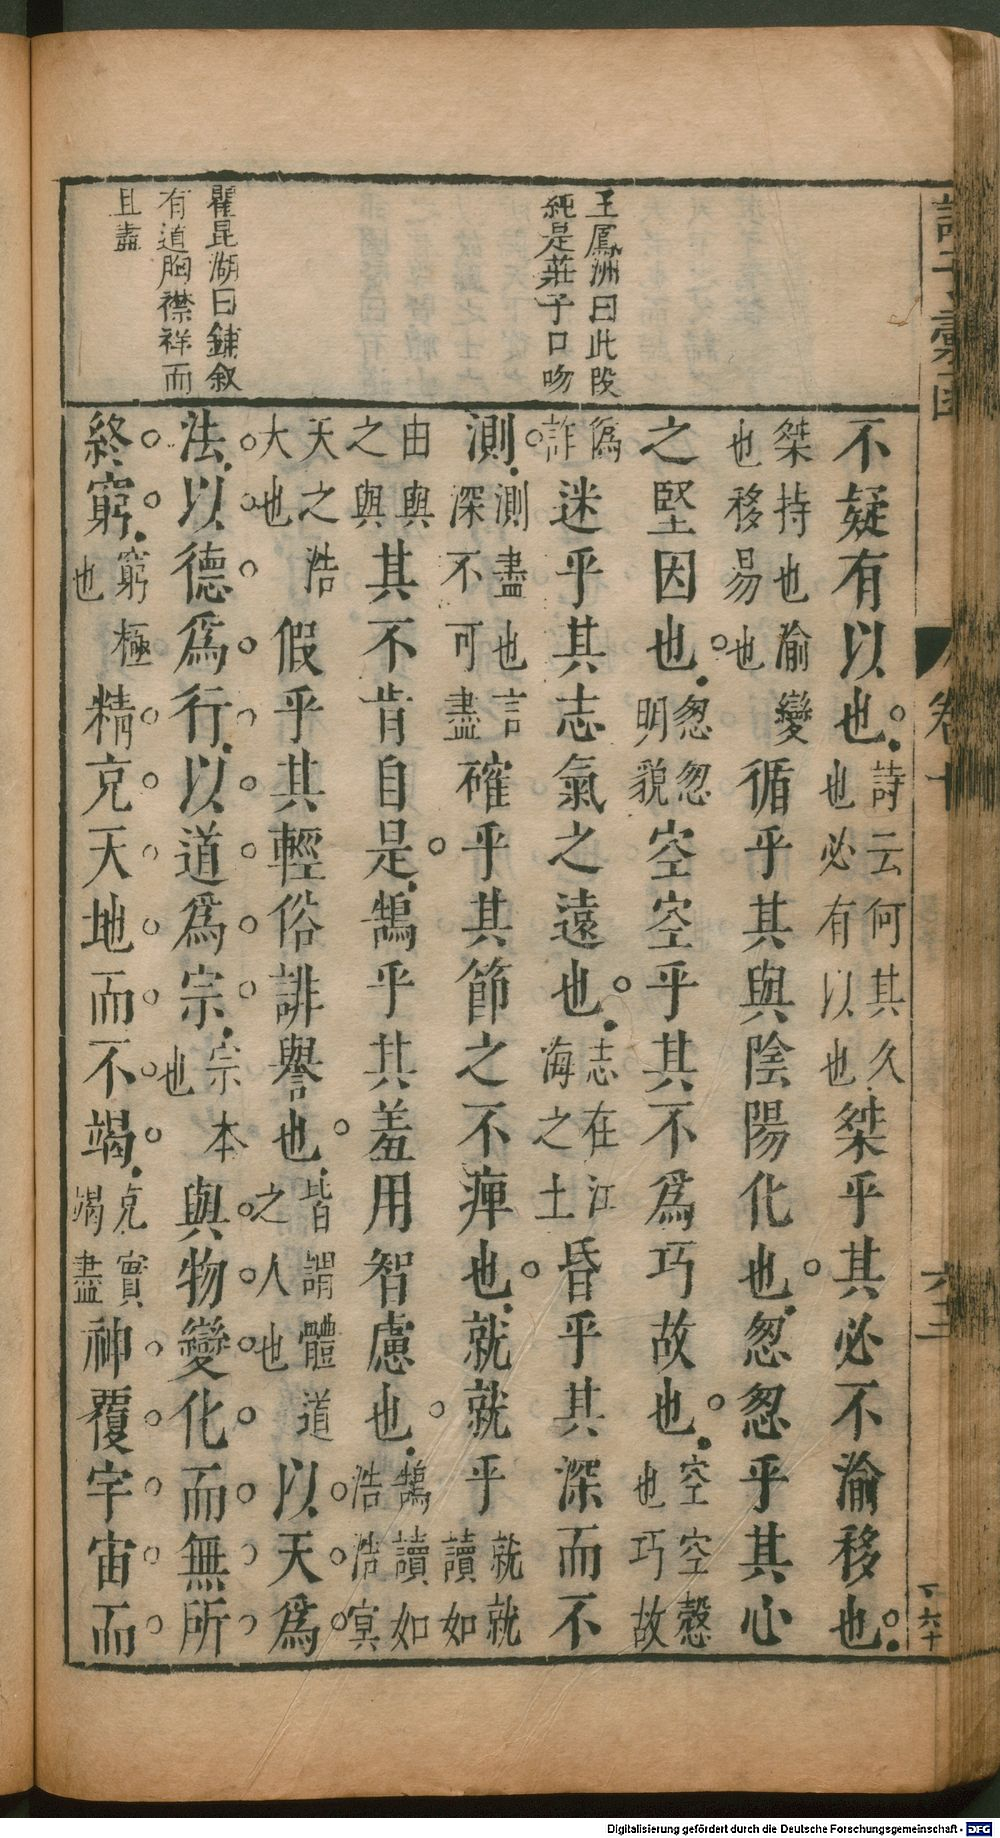 王鳳洲曰此段
純是莊子口吻
瞿昆湖曰鋪叙
有道胸襟祥而
且盡
不疑有以也詩云何其久也必有以也桀乎其必不渝移也
桀持也渝變也移易也循乎其與陰陽化也怱怱乎其心
之堅因也怱怱明貌空空乎其不爲巧故也空空愨也巧故
僞詐迷乎其志氣之遠也志在江海之士昏乎其深而不
測測盡也言深不可盡確乎其節之不痺也就就乎就就讀如
由與之與其不肯自是鵠乎其羞用智慮也鵠讀如浩浩㝠
天之浩大也假乎其輕俗誹譽也皆謂體道之人也以天爲
法以德爲行以道爲宗宗本也與物變化而無所
終窮窮極也精充天地而不竭充實竭盡神覆宇宙而
卷十
六十
Digitalisierung gefördert durch die Deutsche Forschungsgemeinschaft - DFG